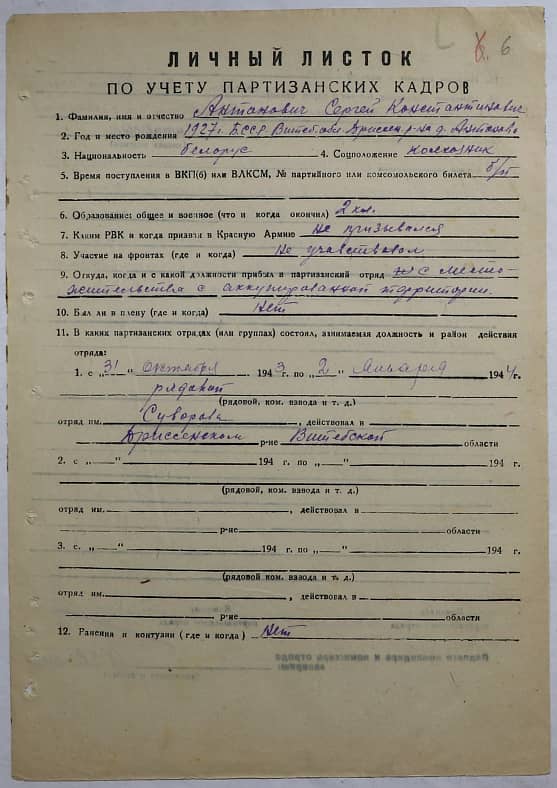 6
ЛИЧНЫЙ ЛИСТОК
ПО УЧЕТУ ПАРТИЗАНСКИХ КАДРОВ
1. Фамилия, имя и отчество Антанович Сергей Константинович
2. Год и место рождения 1927г. БССР Витебская Дриссен. р-на д.
3. Национальность белорус 4. Соцположение колхозник
5. Время поступления в ВКП(б) или ВЛКСМ, № партийного или комсомольского билета б/п
6. Образование: общее и военное (что и когда окончил) 2 кл.
7. Каким РВК и когда призван в Красную Армию не призывался
8. Участие на фронтах (где и когда) не учавствовал
9. Откуда, когда и с какой должности прибыл в партизанский отряд с место-
жительства с аккупированной территории.
10. Был ли в плену (где и когда) нет
11. В каких партизанских отрядах (или группах) состоял, занимаемая должность и район действия
отряда:
1. с „31“ октября 1943 г. по „2“ января 1944 г.
рядовой
(рядовой, ком. взвода и т. д.)
отряд им. Суворова, действовал в
Дриссенском р-не Витебской области
2. с „—“ 194 г. по „—“ 194 г.
(рядовой, ком. взвода и т. д.)
отряд им. , действовал в
р-не области
3. с „—“ 194 г. по „—“ 194 г.
(рядовой, ком. взвода и т. д.)
отряд им. , действовал в
р-не области
12. Ранения и контузии (где и когда) нет